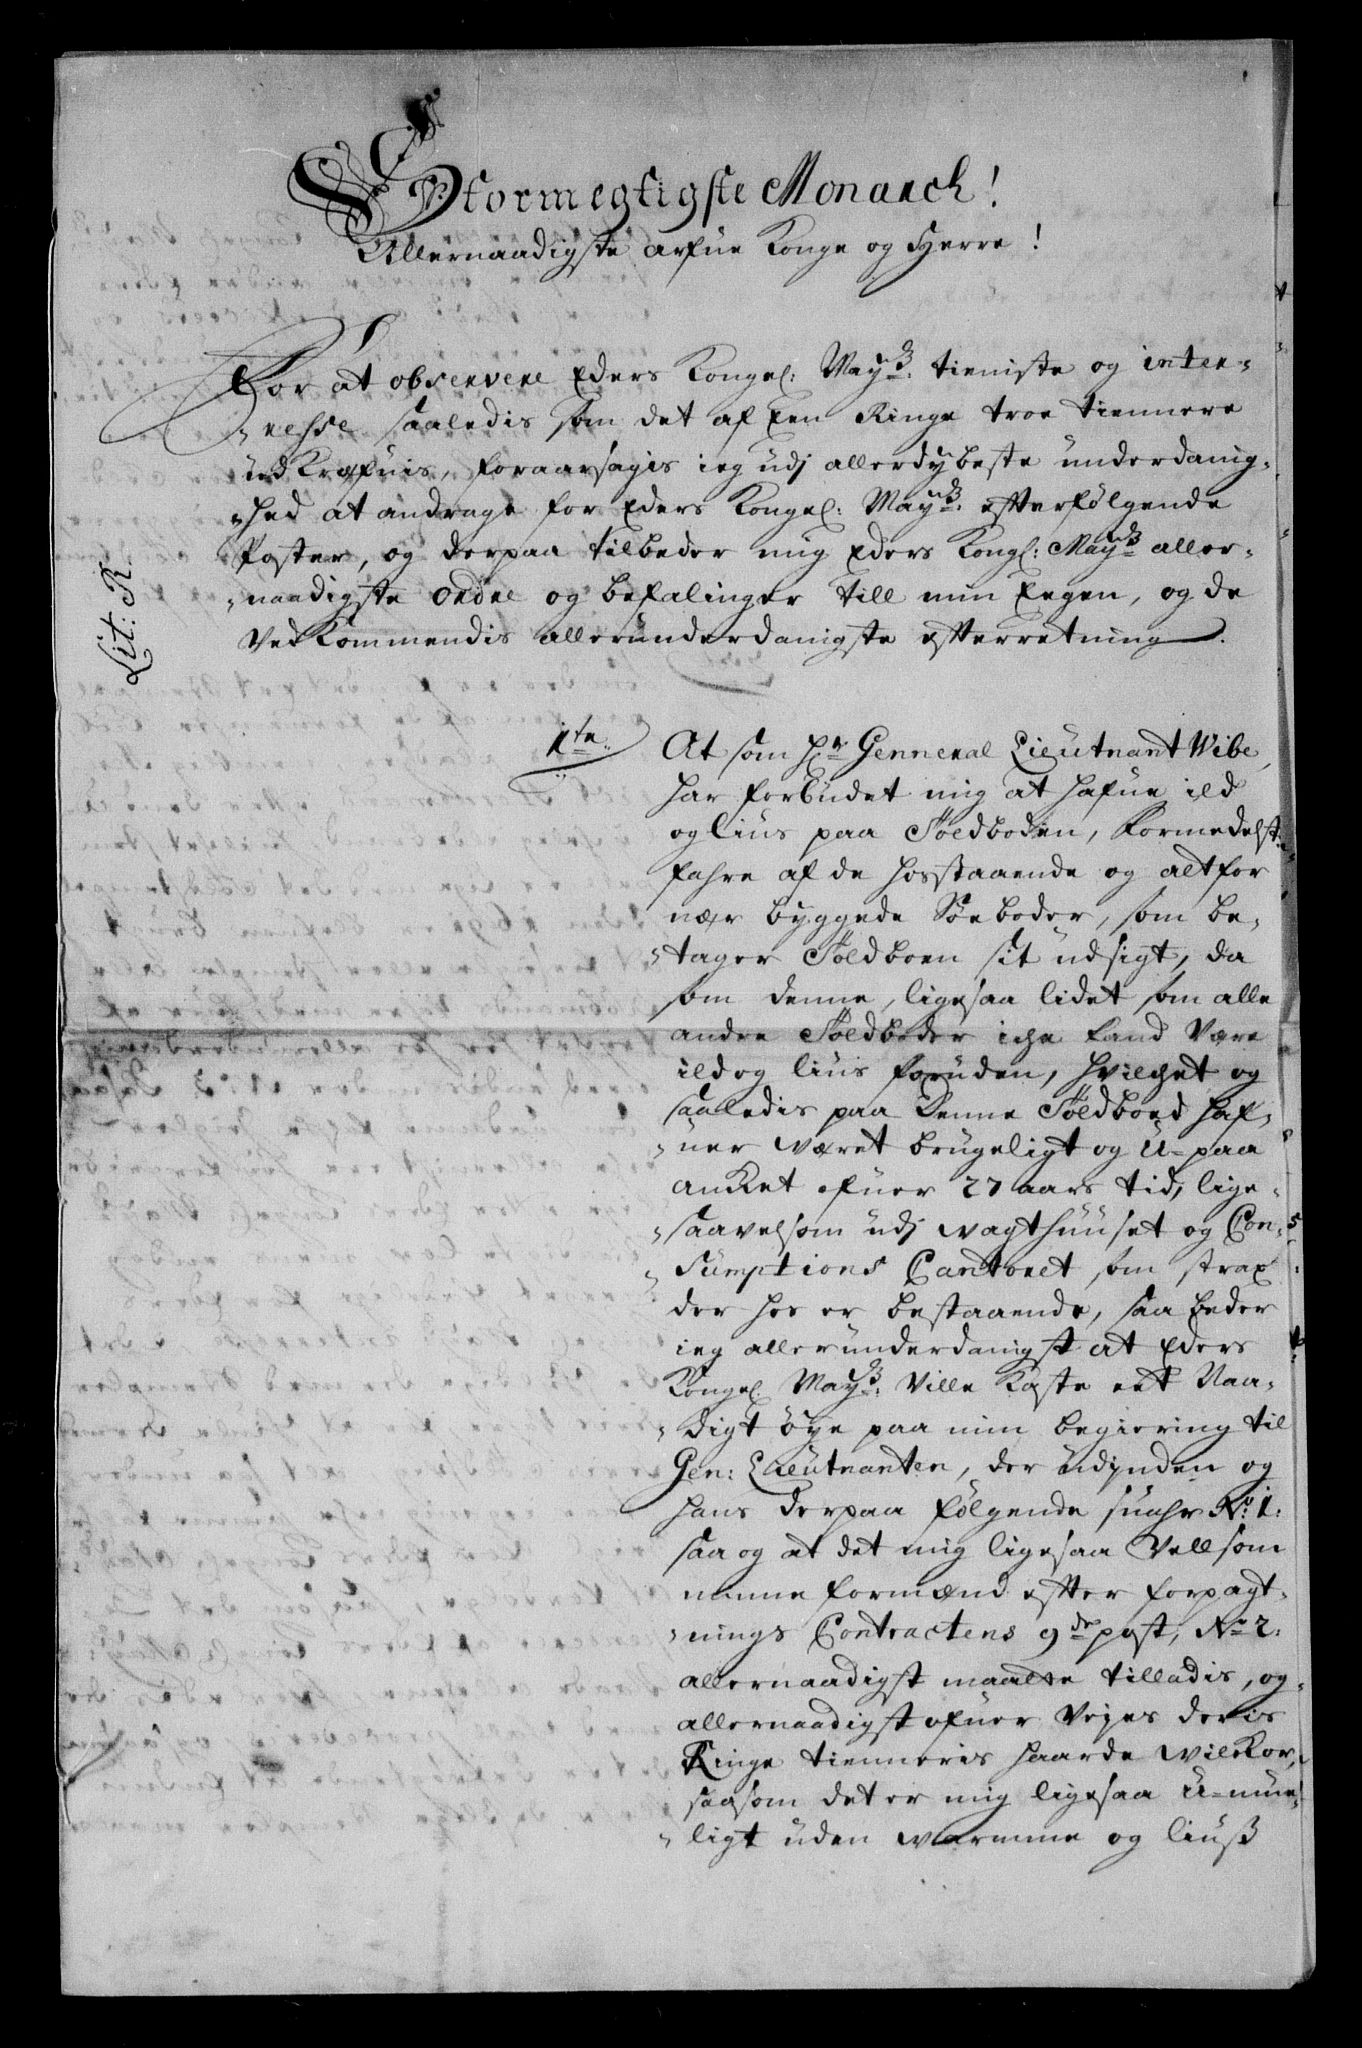 Stormegtigste Monarch!
Allernaadigste arfue Konge og Herre!
For at observere Eders Kongel: Mayts: tieniste og inter-
"resse saaledis som det af Een Ringe troe tiennere
udKræfuis, foraarsagis ieg udj allerdybeste underdanig-
"hed at andrage for Eders Kongel: Mayts: effterfølgende
Poster, og derpaa tilbeder mig Eders Kongl: Mayts aller-
"naadigste Ordre og befalinger till min Eegen, og de
VedKommendis allerunderdanigste effterretning.
Lit: R.
1te
At som Hr Genneral Lieutnant Wibe,
har forbudet mig at hafue ild
og lius paa Toldboden, formedelst
fahre af de hosstaaende og altfor
nær byggede Søeboder, som be-
"tager Toldboen sit udsigt, da
som denne, ligesaa lidet som alle
andre Toldboder iche kand Være
ild og lius foruden, hvilchet og
saaledis paa denne Toldboed haf-
"uer været brugeligt og U-paa
anket ofuer 27 aars tid, lige-
"saavelsom udj wagthuuset og Con-
"sumptions Cantoret som strax
der hos er bestaaende, saa beder
ieg allerunderdanigst at Eders
Kongel Mayts: Ville Kaste eet Naa-
"digt øye paa min begiering til
Gen: Lieutnanten, der udjnden og
hans derpaa følgende suahr No: 1:
saa og at det mig ligesaa Vell som
minne formænd effter forpagt-
"nings Contractens 9de post, No 2:
allernaadigst maatte tilladis, og
allernaadigst ofuer Vejes deris
Ringe tienneris haarde wilKor,
saasom det er mig ligesaa U-mue-
"ligt uden warmme og liuss